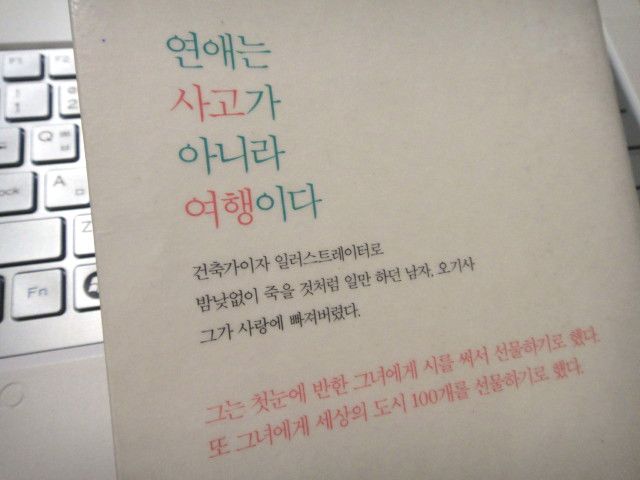 연애는
사고가
아니라
여행이다
건축가이자 일러스트레이터로
밤낮없이 죽을 것처럼 일만 하던 남자, 오기사
그가 사랑에 빠져버렸다.
그는 첫눈에 반한 그녀에게 시를 써서 선물하기로 했다.
또 그녀에게 세상의 도시 100개를 선물하기로 했다.
F1
F2
!
1
2
Q ㅃ
ㅂ
ock
A
ㅁ
Z
Fn